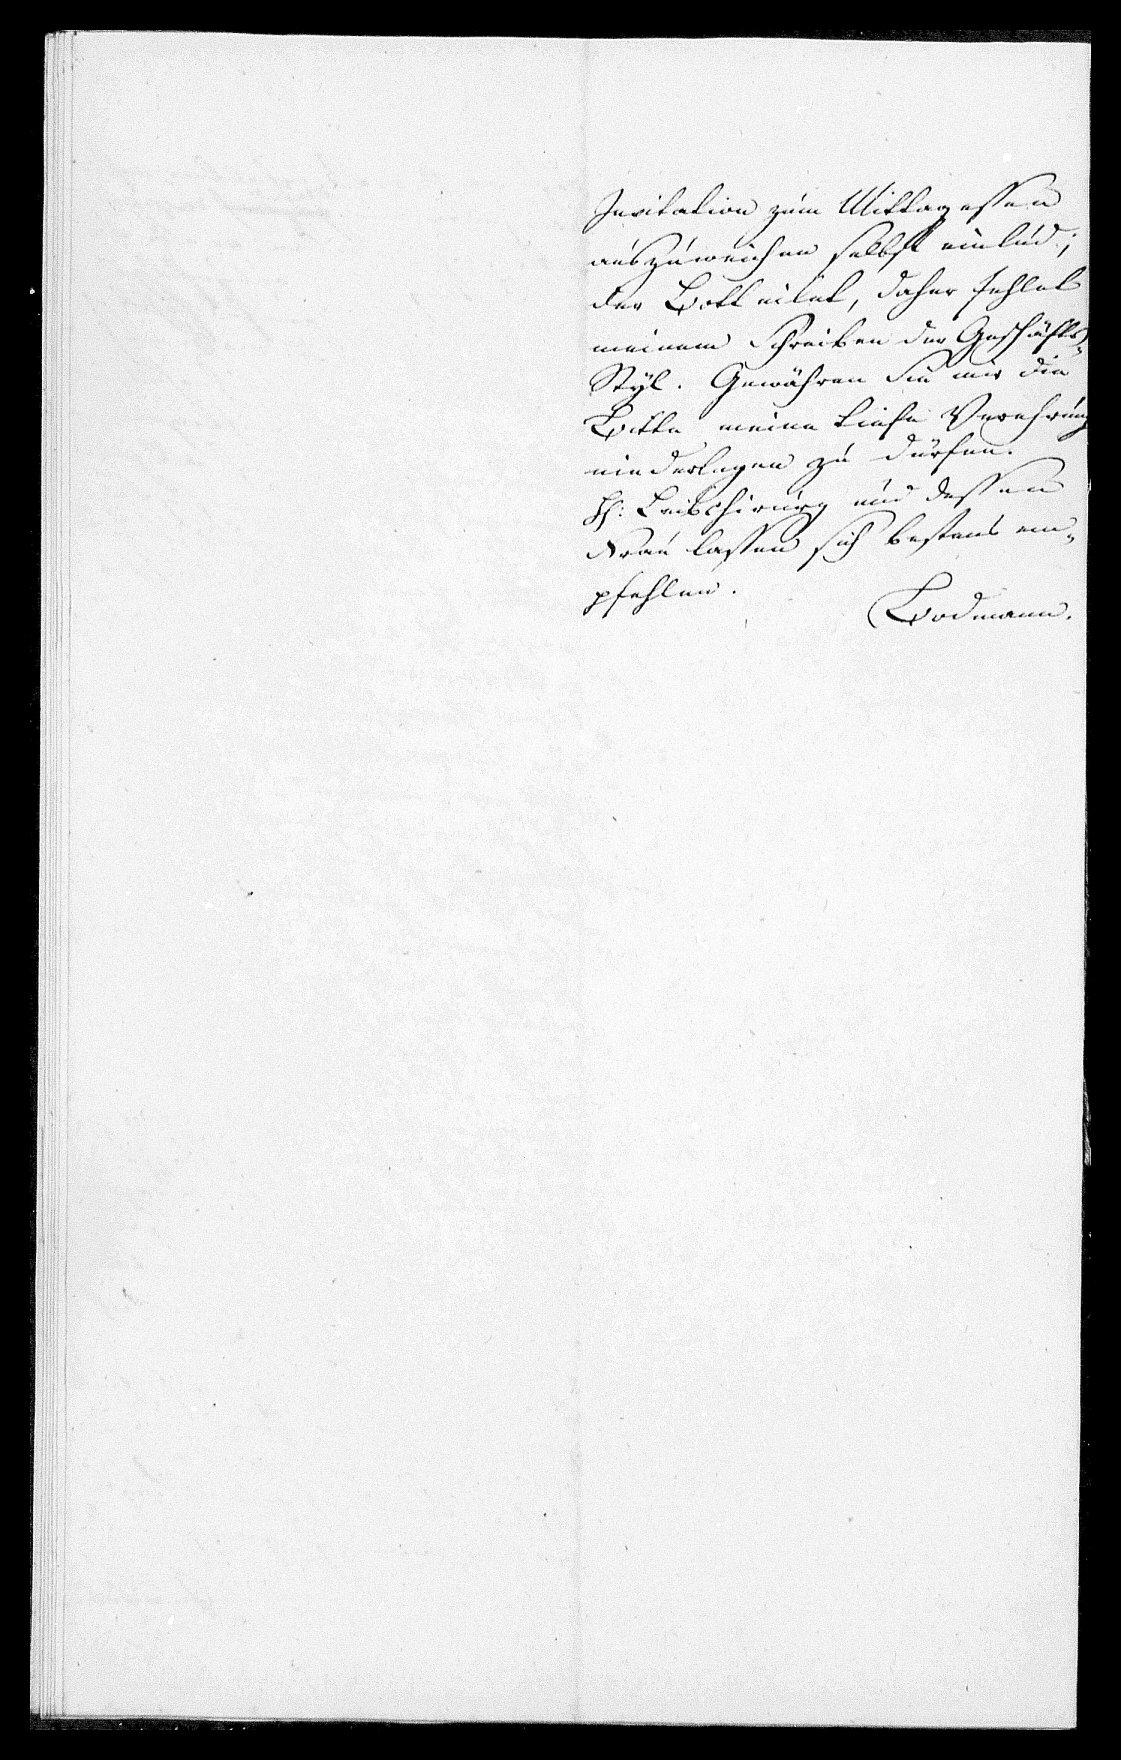 Invitation zum Mittagessen
auszuweichen selbst einlud;
der Bott eilet, daher fehlet
meinem Schreiben der Geschäfts-
Styl. Gewähren Sie mir die
Bitte meine tiefe Verehrung
niederlegen zu dürfen.
H: Leibchirurg und dessen
Frau lassen sich bestens em-
pfehlen.
Bodmann.